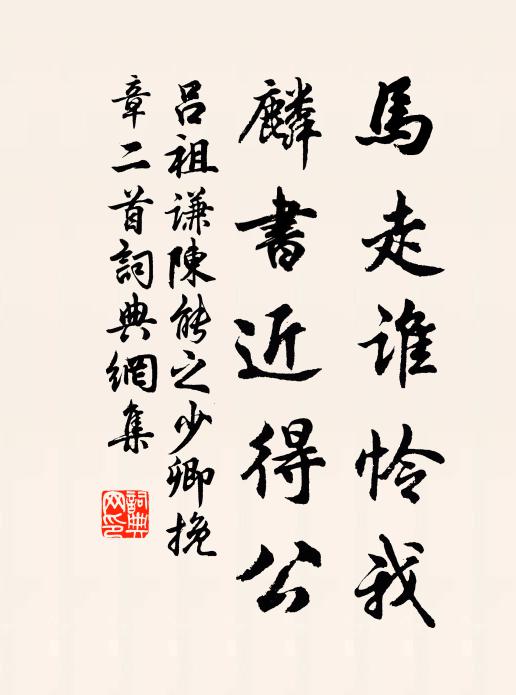 馬走誰怜我
麟書近得公
呂祖謙陳能之少卿挽
章二首詞典網集
詞典
网印